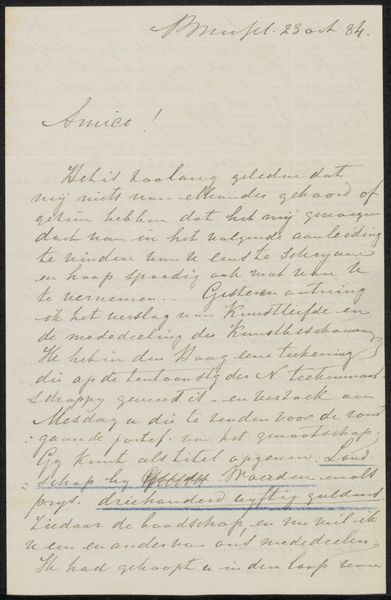 Brussel. 23 oct 84.
Amice!
Het is zoolang geleden dat
wij niets van elkander gehoord of
gezien hebben dat het mij genoegen
doet van in het volgende aanleiding
te vinden van u eens te schryven
en hoop spoedig ook wat van u
te vernemen... Gisteren ontving
ik het verslag van Kunstliefde en
de mededeeling der Kunstbeschouwing
Ik heb in den Haag eene teekening
die op de tentoonstg der N. teekenmaat
schappy geweest is - en verzoek aan
Mesdag u die te zenden voor de rond
gaande portef. van het genootschap
Gy kunt als titel opgeven: Land
schap by Woerden en als
prys. driehonderd vyftig guldens
Ziedaar de boodschap en nu wil ik
u een en ander van ons mededeelen:
Ik had gehoopt u in den loop van